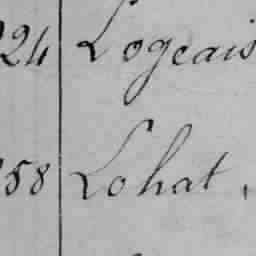 24 Logeais
58 Lohat.